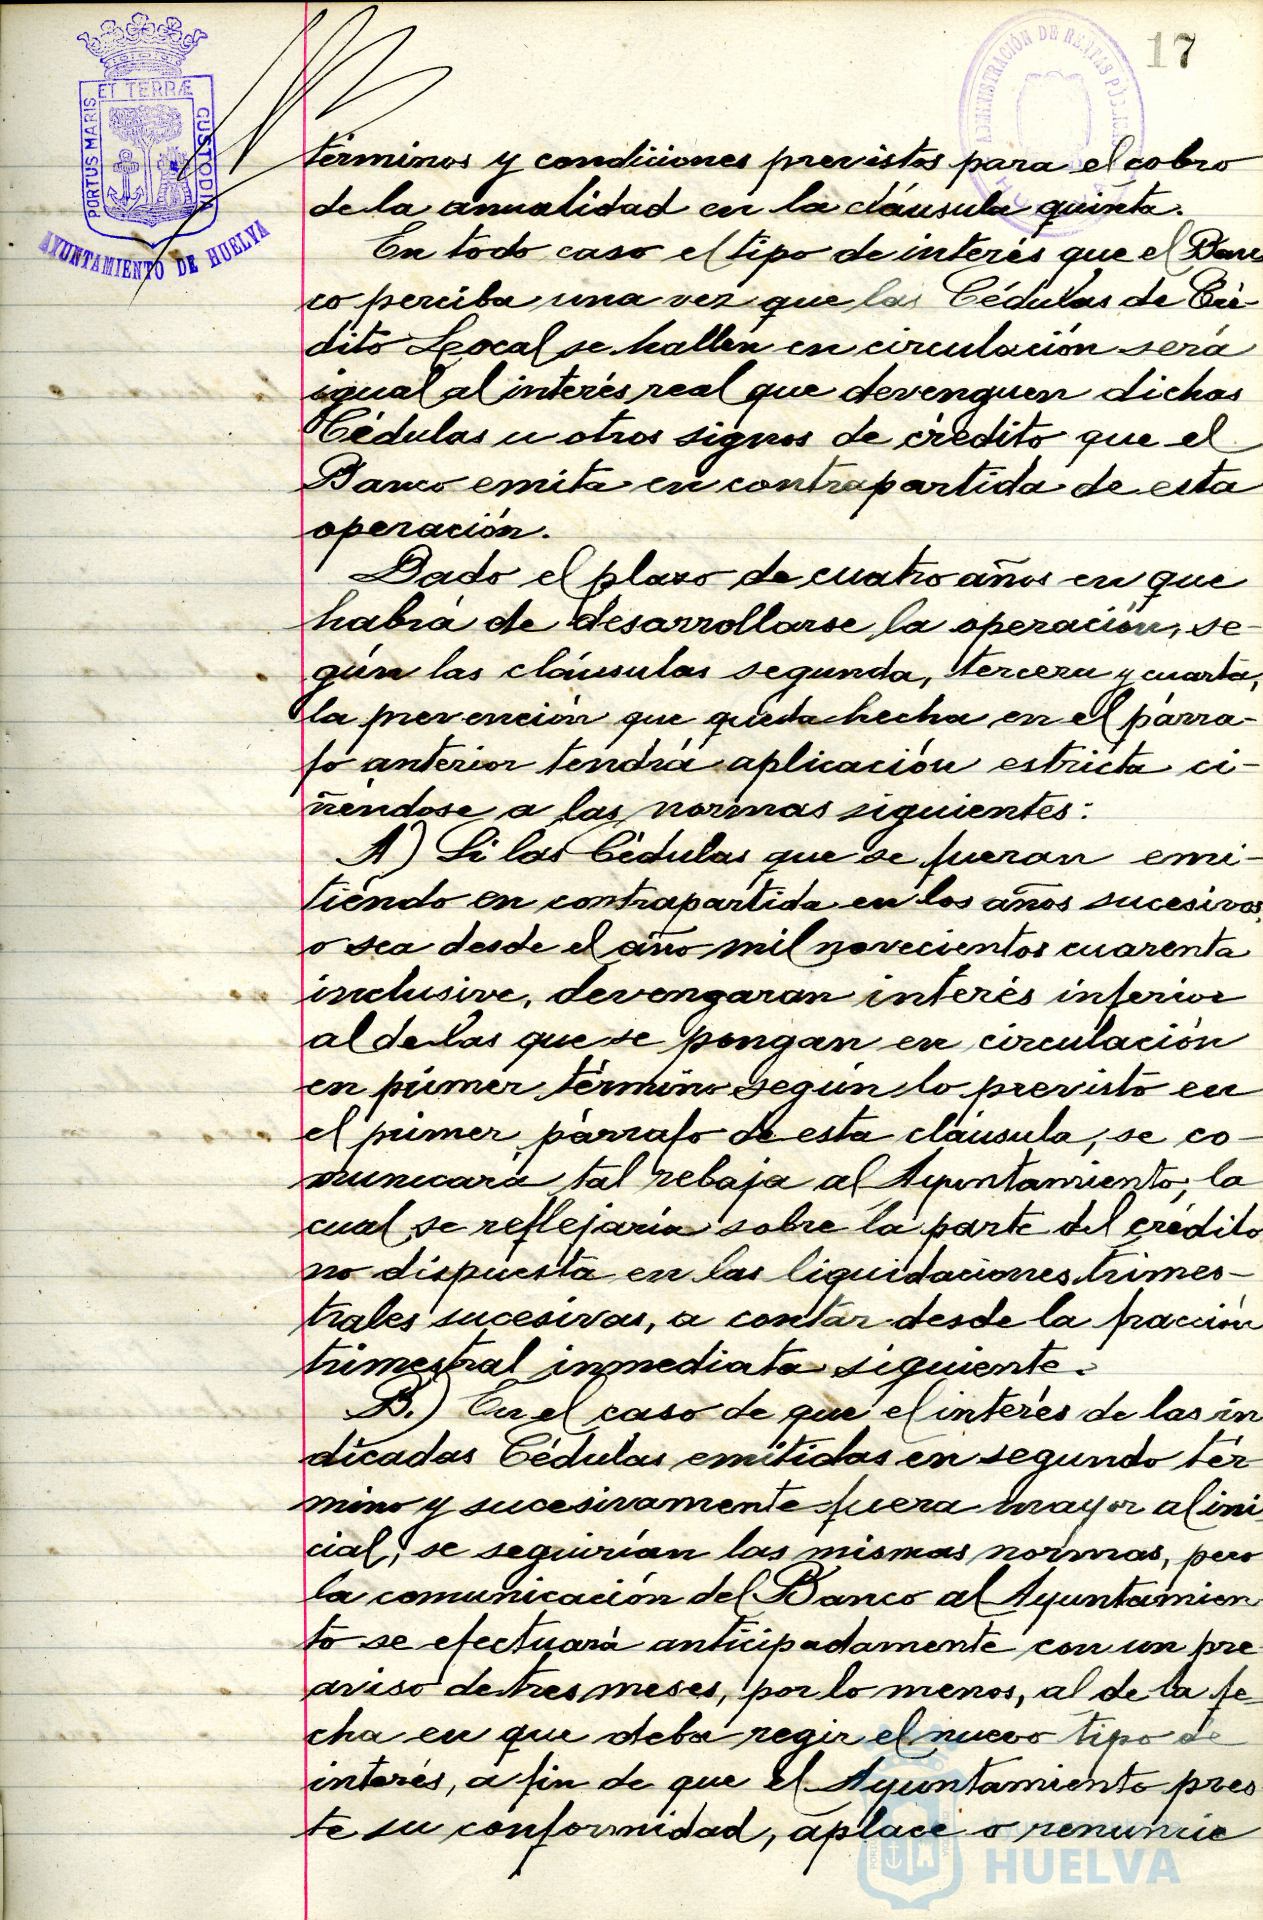 17
ADMINISTRACIÓN DE RENTAS PÚBLICAS
ET TERRÆ
PORTUS MARIS
CUSTODIA
AYUNTAMIENTO DE HUELVA
términos y condiciones previstos para el cobro
de la anualidad en la cláusula quinta.
En todo caso el tipo de interés que el Ban
co perciba una vez que las Cédulas de Cré-
dito Local se hallen en circulación será
igual al interés real que devenguen dichas
Cédulas u otros signos de crédito que el
Banco emita en contrapartida de esta
operación.
Dado el plazo de cuatro años en que
habrá de desarrollarse la operación, se-
gún las cláusulas segunda, tercera y cuarta,
la prevención que queda hecha en el párra-
fo anterior tendrá aplicación estricta ci-
ñéndose a las normas siguientes:
A) Si las Cédulas que se fueran emi-
tiendo en contrapartida en los años sucesivos,
o sea desde el año mil novecientos cuarenta
inclusive, devengaran interés inferior
al de las que se pongan en circulación
en primer término según lo previsto en
el primer párrafo de esta cláusula, se co-
municará tal rebaja al Ayuntamiento, la
cual se reflejaría sobre la parte del crédito
no dispuesta en las liquidaciones trimes-
trales sucesivas, a contar desde la fracción
trimestral inmediata siguiente.
B.) En el caso de que el interés de las in
dicadas Cédulas emitidas en segundo tér
mino y sucesivamente fuera mayor al ini
cial, se seguirían las mismas normas, pero
la comunicación del Banco al Ayuntamien
to se efectuará anticipadamente con un pre
aviso de tres meses, por lo menos, al de la fe-
cha en que deba regir el nuevo tipo de
interés, a fin de que el Ayuntamiento pres
te su conformidad, aplace o renuncie
HUELVA